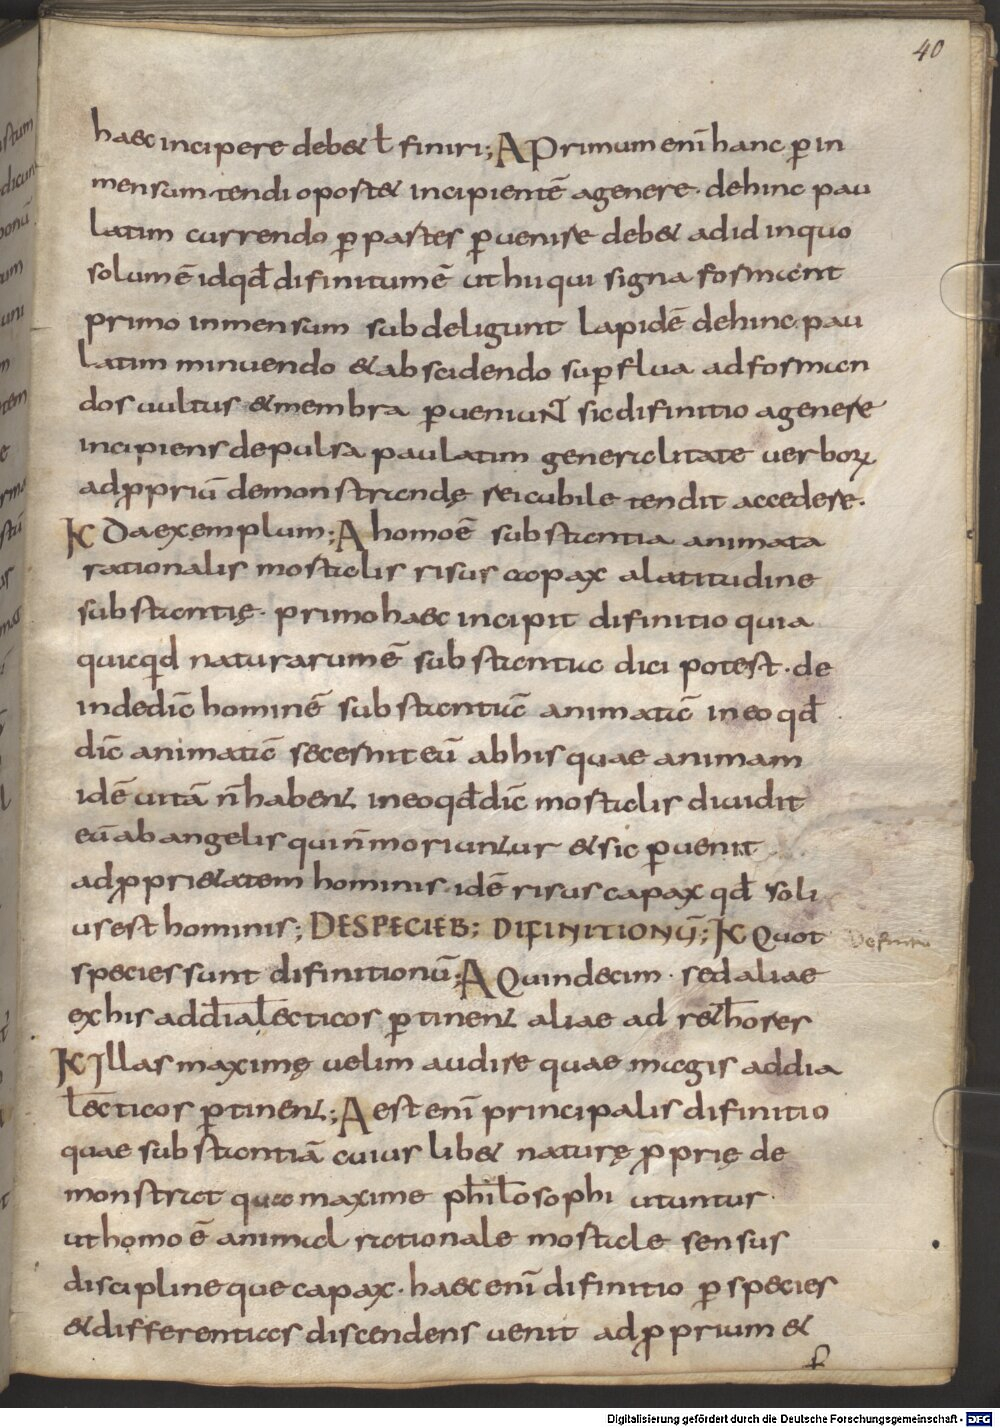 40
haec incipere deb& ł finiri; A Primum eni̅ hanc p̲ in
mensum tendi oport& incipiente̅ agenere· dehinc pau
latim currendo p̲ partes p̲uenire deb& ad id in quo
solum e̅ id qd̅ difinitum e̅ ut hii qui signa formant
primo inmensum subdeligunt lapide̅ dehinc pau
latim minuendo & abscidendo sup̲flua ad forman
dos uultus & membra p̲ueniuNT sic difinitio agenere
incipiens depulsa paulatim generalitate uerboꝝ
ad ꝓpriu̅ demonstrandę rei cubile tendit accedere·
K Da exemplum; A homo e̅ substantia animata
rationalis mortalis risus capax alatitudine
substantię· primo haec incipit difinitio quia
quicqd̅ naturarum e̅ substantia dici potest· de
inde dic̅ homine̅ substantia̅ animata̅ in eo qd̅
dic̅ animata̅ secernit eu̅ ab his quae animam
ide̅ uita̅ n̅ habent in eo qd̅ dic̅ mortalis diuidit
eu̅ ab angelis qui n̅ moriuntur & sic p̲uenit
ad ꝓpri&atem hominis· ide̅ risus capax qd̅ soli
us est hominis; DE SPECIEB; DIFINITIONU̅; K Quot
Definitio
species sunt difinitionu̅; A Quindecim· sed aliae
ex his ad dialecticos p̲tinent aliae ad r&hores
K Illas maximę uelim audire quae magis ad dia
lecticos p̲tinent; A est eni̅ principalis difinitio
quae substantia̅ cuius lib& naturę ꝓprię de
monstrat qua maxime philosophi utuntur
ut homo e̅ animal rationale mortale sensus
discipline que capax· haec eni̅ difinitio p̲ species
& differentias discendens uenit ad ꝓprium &
Digitalisierung gefördert durch die Deutsche Forschungsgemeinschaft - DFG